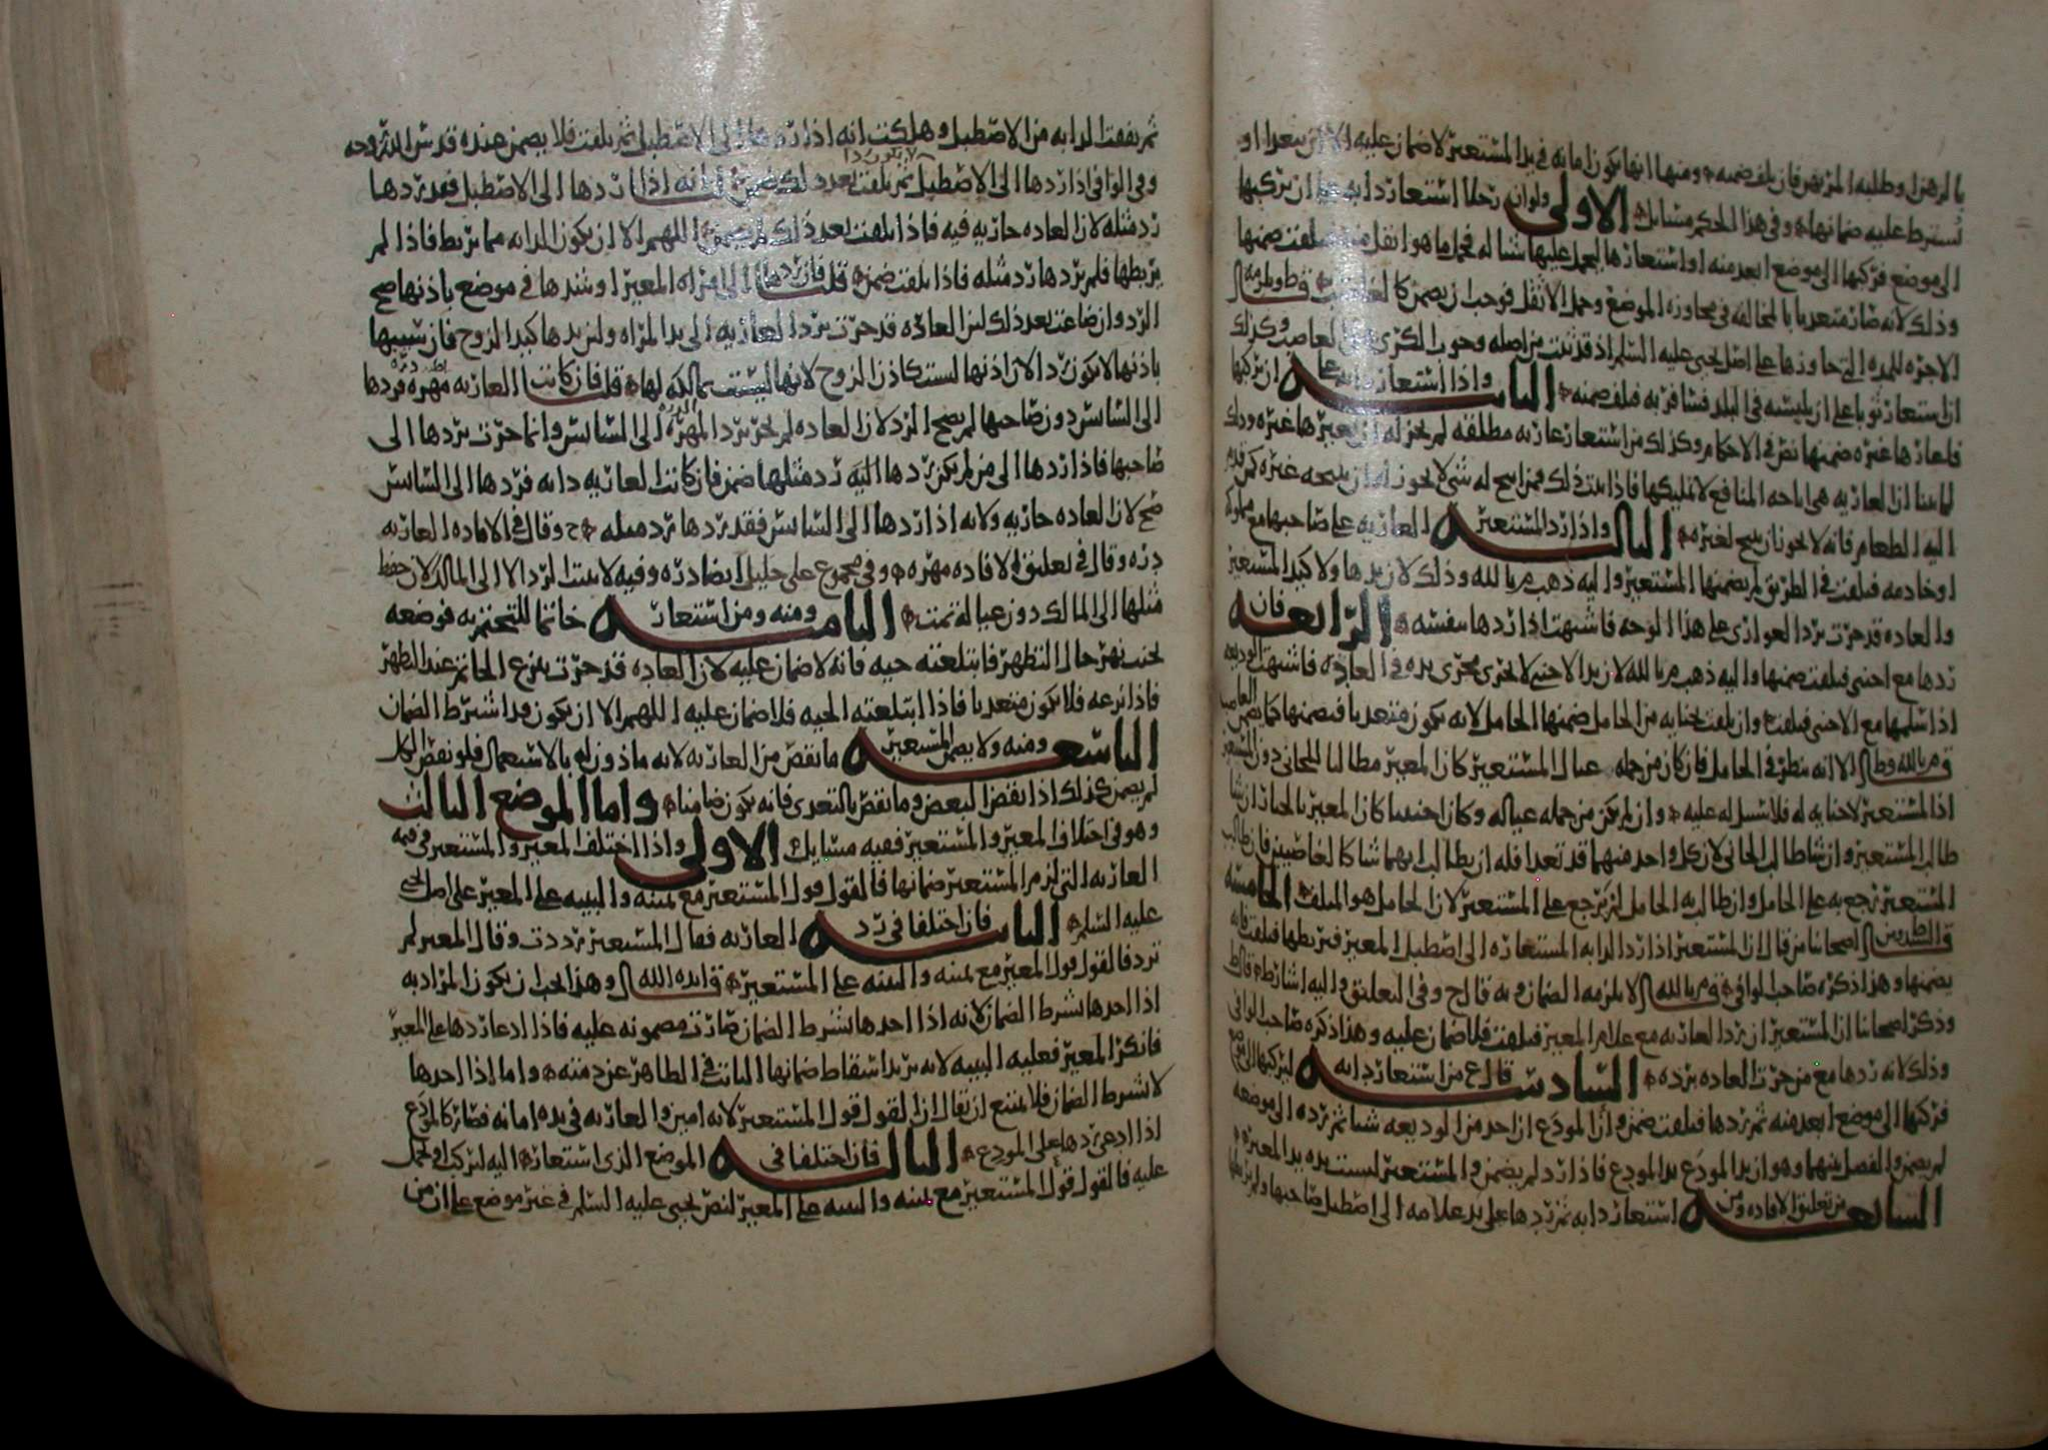 بالرهن وطلبه المرتهن فان تلف ضمنه ومنها انها تكون امانه في يد المستعير لا ضمان عليه الا ان يتعدا او
يشترط عليه ضمانها وفي هذا الحكم مسايل الاولى ولو ان رجلا استعار دابه على ان يركبها
الى موضع فركبها الى موضع ابعد منه او استعارها ليحمل عليها شيا له فحمل ما هو اثقل منه فتلفت ضمنها
وذلك لانه صار متعديا بالمخالفه في مجاوزه الموضع وحمل الاثقل فوجب ان يضمن كالغاصب
الاجره للمده التي جاوزها على اصل يحيى عليه السلم اذ قد ثبت من اصله وجوب الكرى على الغاصب وكذلك
ان استعار ثوبا على ان يلبسه في البلد فسافر به فتلف ضمنه الثانيه واذا استعار دابه على ان يركبها
فاعارها غيره ضمنها نص في الاحكام وكذلك من استعار عاريه مطلقه لم يجز له ان يعيرها غيره وذلك
لما بينا ان العاريه هي اباحه المنافع لا تمليكها فاذا ثبت ذلك فمن ابيح له شي لا يجوز له ان يبيحه غيره كمن قدم
اليه الطعام فانه لا يجوز ان يبيح لغيره الثالثه واذا رد المستعير العاريه على صاحبها مع مملوكه
او خادمه فتلفت في الطريق لم يضمنها المستعير واليه ذهب م بالله وذلك لان يدها ولا كيد المستعير
والعاده قد جرت برد العواري على هذا الوجه فاشبهت اذا ردها بنفسه الرابعه فان
ردها مع اجنبي فتلفت ضمنها واليه ذهب م بالله لان يد الاجنبي لا تجري مجرى يده في العاده فاشبهت الوديعه
اذا سلمها مع الاجنبي فتلفت وان تلفت بجنايه من الحامل ضمنها الحامل لانه يكون متعديا فيضمنها كما يضمن الغاصب
م بالله وط الا انه ينظر في الحامل فان كان من جمله عيال المستعير كان المعير مطالبا للجاني دون المستعير
اذا المستعير لا جنايه له فلا سبيل له عليه وان لم يكن من جمله عياله وكان اجنبيا كان المعير بالخيار ان شا
طالب المستعير وان شا طالب الجاني لان كل واحد منهما قد تعدا فله ان يطالب ايهما شا كالغاصبين فان طالب
المستعير رجع به على الحامل وان طالب به الحامل لم يرجع على المستعير لان الحامل هو المتلف الخامسه
اصحابنا من قال ان المستعير اذا رد الدابه المستعاره الى اصطبل المعير فربطها فتلفت فانه
يضمنها وهذا ذكره صاحب الوافي م بالله لا يلزمه الضمان وبه قال ح وفي التعليق واليه اشار ط قال ط
وذكر اصحابنا ان المستعير ان رد العاريه مع غلام المعير فتلفت فلا ضمان عليه وهذا ذكره صاحب الوافي
وذلك لانه ردها مع من جرت العاده برده السادسه قال ع من استعار دابه ليركبها الى موضع
فركبها الى موضع ابعد منه ثم ردها فتلفت ضمن وان المودع ان اخذ من الوديعه شيا ثم رده الى موضعه
لم يضمن والفصل بينهما وهو ان يد المودع يد المودع فاذا رد لم يضمن والمستعير ليست يده يد المعير
السابعه من تعليق الافاده ومن استعار دابه ثم ردها على يد غلامه الى اصطبل صاحبها ولم يربطها
ثم نفقت الدابه من الاصطبل وهلكت انه اذا ردها الى الاصطبل ثم تلفت فلا يضمن عنده قدس الله روحه
وفي الوافي اذا ردها الى الاصطبل ثم تلفت بعد ذلك ضمن لانه اذا ردها الى الاصطبل فقد ردها
رد مثله لان العاده جاريه فيه فاذا تلفت بعد ذلك لم يضمن اللهم الا ان يكون الدابه مما يربط فاذا لم
يربطها فلم يردها رد مثله فاذا تلفت ضمن قلت فان ردها الى امراه المعير او شدها في موضع باذنها صح
الرد وان ضاعت بعد ذلك لان العاده قد جرت برد العاريه الى يد المراه وان يدها كيد الزوج فان سيبها
باذنها لا يكون ردا لان اذنها ليست كاذن الزوج لانها ليست بمالكه لها قلت فان كانت العاريه مهره فردها
الى السايس دون صاحبها لم يصح الرد لان العاده لم تجر برد المهره الى السايس وانما جرت بردها الى
صاحبها فاذا ردها الى من لم يكن ردها اليه رد مثلها ضمن فان كانت العاريه دابه فردها الى السايس
صح لان العاده جاريه ولانه اذا ردها الى السايس فقد ردها رد مثله وقال في الافاده العاريه
دره وقال في تعليق الافاده مهره وفي مجموع على خليل ايضا دره وفيه لا يثبت الرد الا الى المالك لان حفظ
مثلها الى المالك دون عياله تمت الثامنه ومنه ومن استعار خاتما للتختم به فوضعه
لجنب نهر حال التطهر فابتلعته حيه فانه لا ضمان عليه لان العاده قد جرت بنزع الخاتم عند التطهر
فاذا نزعه فلا يكون متعديا فاذا ابتلعته الحيه فلا ضمان عليه اللهم الا ان يكون قد اشترط الضمان
التاسعه ومنه ولا يضمن المستعير ما نقص من العاريه لانه ماذون له بالاستعمال فلو نقص الكل
لم يضمن كذلك اذا نقص البعض وما نقص بالتعدي فانه يكون ضامنا واما الموضع الثالث
وهو في اختلاف المعير والمستعير ففيه مسايل الاولى واذا اختلف المعير والمستعير في قيمه
العاريه التي لزم المستعير ضمانها فالقول قول المستعير مع يمينه والبينه على المعير على اصل يحيى
عليه السلم الثانيه فان اختلفا في رد العاريه فقال المستعير رددت وقال المعير لم
ترد فالقول قول المعير مع يمينه والبينه على المستعير قال ايده الله وهذا يجب ان يكون المراد به
اذا اخذها بشرط الضمان لانه اذا اخذها بشرط الضمان صارت مضمونه عليه فاذا ادعا ردها على المعير
فانكر المعير فعليه البينه لانه يريد اسقاط ضمانها الثابت في الظاهر عن ذمته واما اذا اخذها
لا بشرط الضمان فلا يمتنع ان يقال ان القول قول المستعير لانه امين والعاريه في يده امانه فصار كالمودع
اذا ادعى ردها على المودع الثالثه فان اختلفا في الموضع الذي استعار اليه ليركب او يحمل
عليه فالقول قول المستعير مع يمينه والبينه على المعير لنص يحيى عليه السلم في غير موضع على ان من